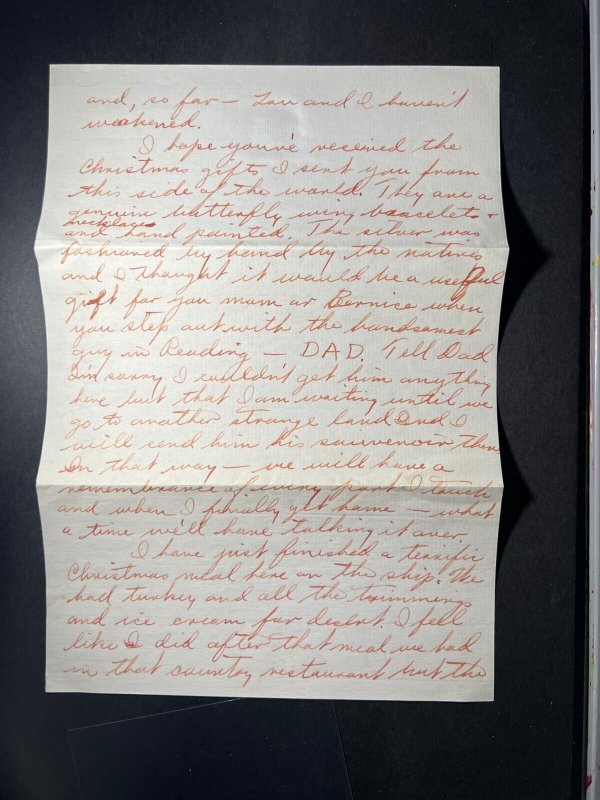 and, so far — Lou and I haven't
weakened.
I hope you've received the
Christmas gifts I sent you from
this side of the world. They are a
genuine butterfly wing bracelet +
necklace
and hand painted. The silver was
fashioned by hand by the natives
and I thought it would be a useful
gift for you mom or Bernice when
you step out with the handsomest
guy in Reading — DAD. Tell Dad
I'm sorry I couldn't get him anything
here but that I am waiting until we
go to another strange land and I
will send him his souvenoir then
In that way — we will have a
remembrance of every port I touch
and when I finially get home — what
a time we'll have talking it over.
I have just finished a terrific
Christmas meal here on the ship. We
had turkey and all the trimmings
and ice cream for desert. I feel
like I did after that meal we had
in that country restaurant but the